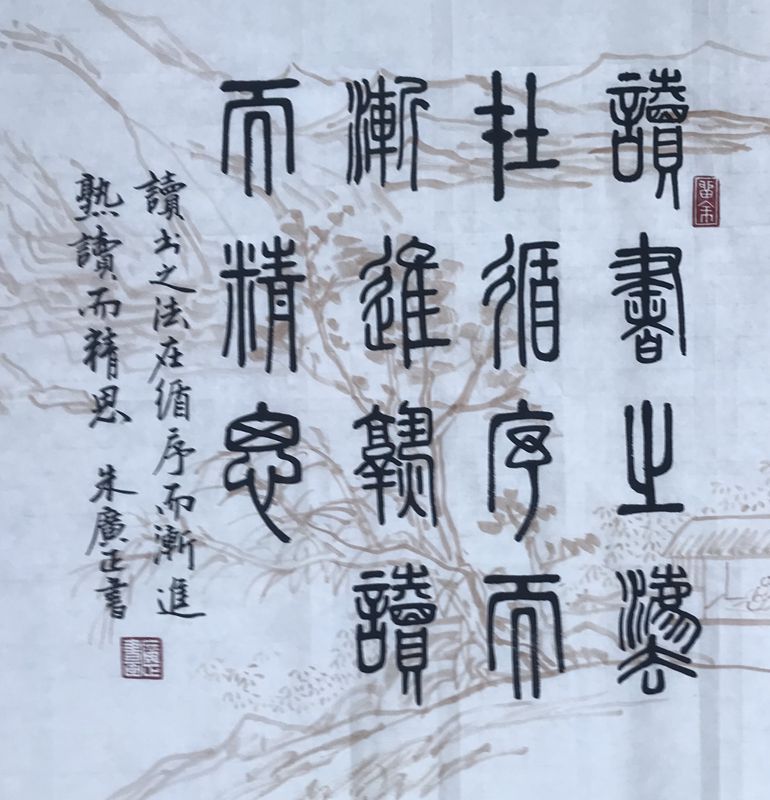 讀書之灋
在循序而
漸進孰讀
而精思
讀书之法在循序而漸進
熟讀而精思 朱廣正書